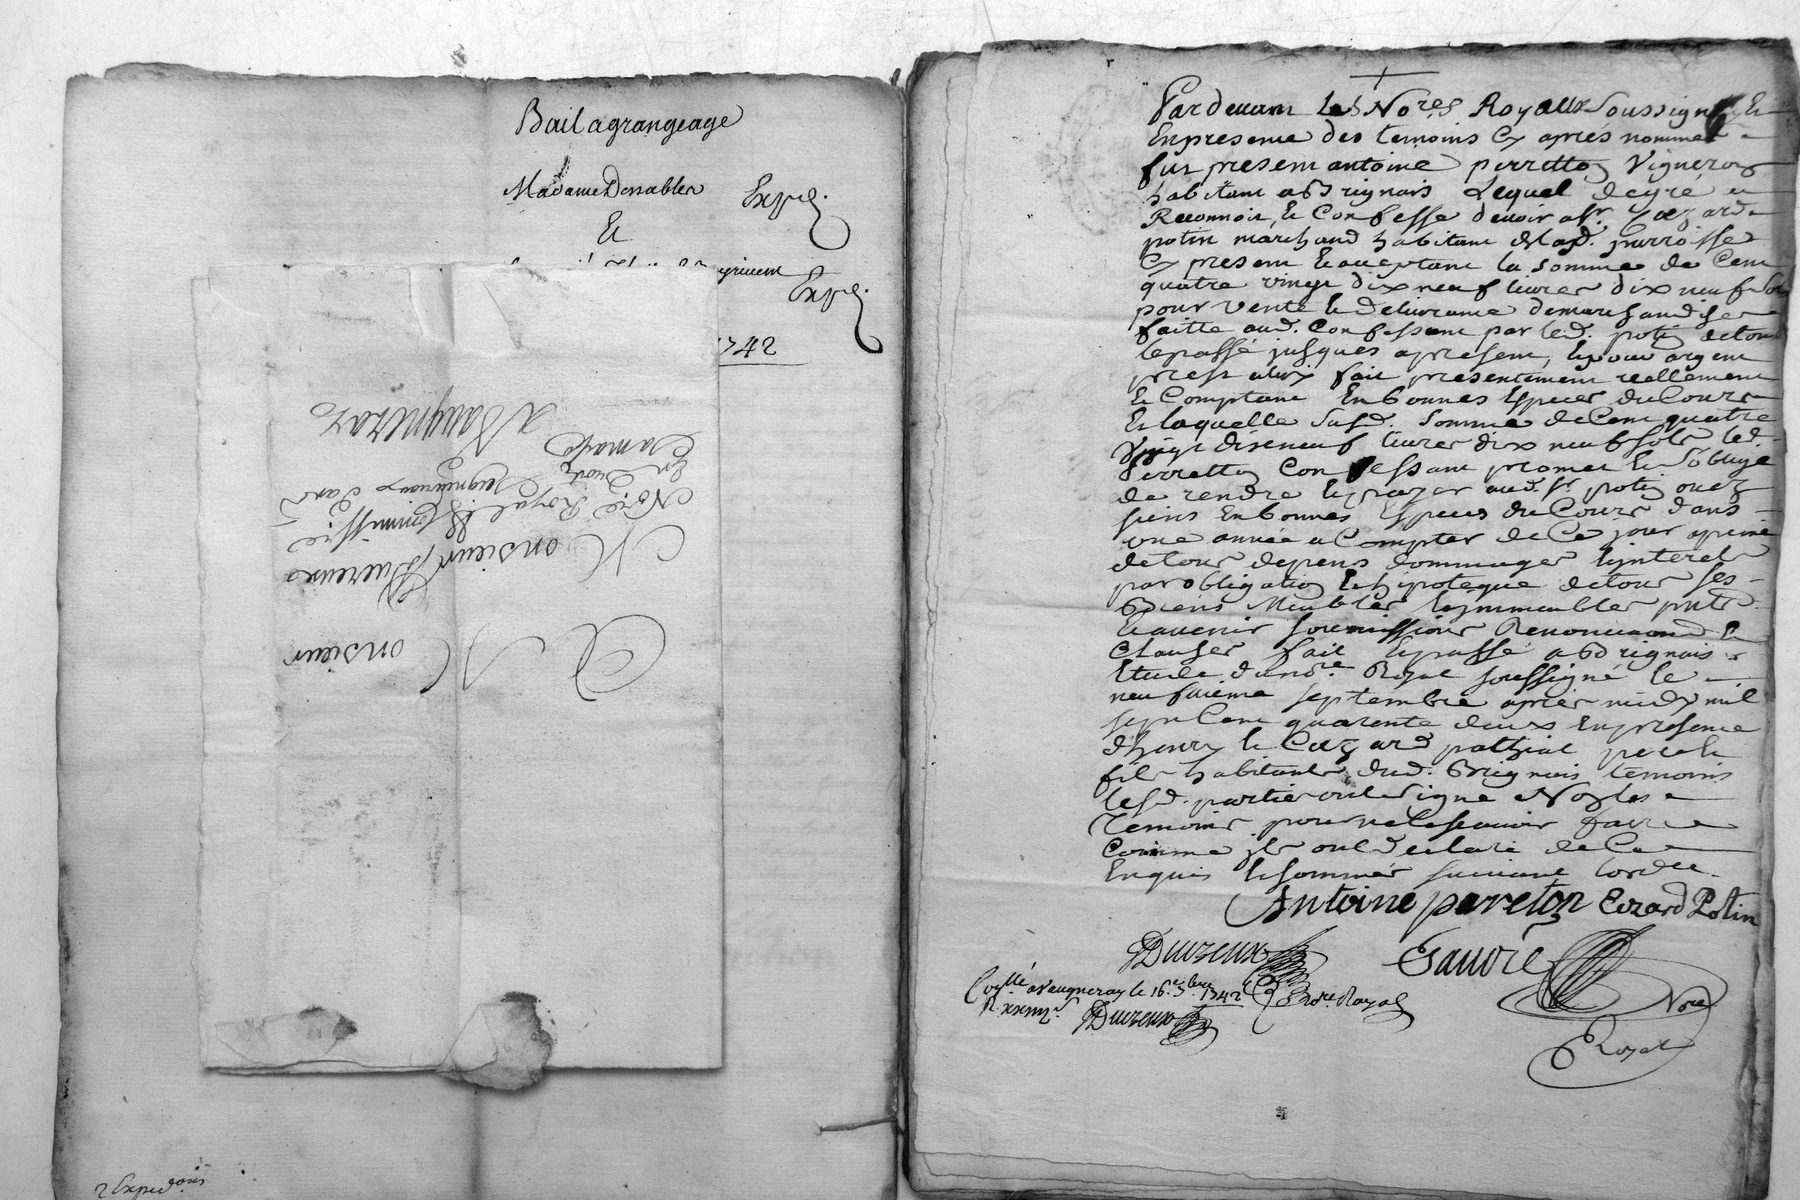 Bail a grangeage
Madame Desnables
Et
Exp.é.
Exp.é.
1742
A Monsieur
Monsieur Duvreux
No.re Royal & Commiss.re
En droits Seigneuriaux dans
sa maison
A Vaugneray
2 Exped.ons
Pardevant Les No.res Royaux Soussignés Et
En presence des temoins Cy apres nommes
fut present antoine perretton Vigneron
habitant a Brignais Lequel de gré a
Reconnoit, Et Confesse devoir a Sr. Cezard
potin marchand habitant aud. parroisse
Cy present Et acceptant la Somme de Cent
quatre vingt dix neuf livres dix neuf Sols
pour vente Et delivrance de marchandises
faitte aud. Confessant par led. potin de tout
le passé jusques a present, Et pour argent
prest a luy fait presentement reellement
Et Comptant En bonnes Especes du Cours
Et laquelle Susd. Somme de Cent quatre
Vingt dix neuf livres dix neuf sols led.
Perretton Confessant promet Et S'oblige
de rendre Et payer aud. Sr. potin ou es
siens En bonnes Especes du Cours dans
une année a Compter de Ce jour a peine
de tous depens dommages Et interets
par obligation Et hipoteque de tous ses
Biens Meubles Et immeubles pnts
Et avenir soumissions Renonciaons Et
Clauses fait Et passé a Brignais
Etude d'un no.re Royal soussigné le
neufvieme septembre apres midy mil
sept Cent quarante deux En presence
d'henry le Cozard
fils habitants dud. Brignais temoins
les d. parties ont signe Non les
temoins pour ne le scavoir faire
Comme ils ont declaré de Ce
Enquis Et sommés suivant l'ordce.
Antoine pareton Cezard Potin
Duvreux
no.re Royal
Gauvre
No.re
Royal
Con.llé a Vaugneray le 16.e 7.bre 1742
Duvreux